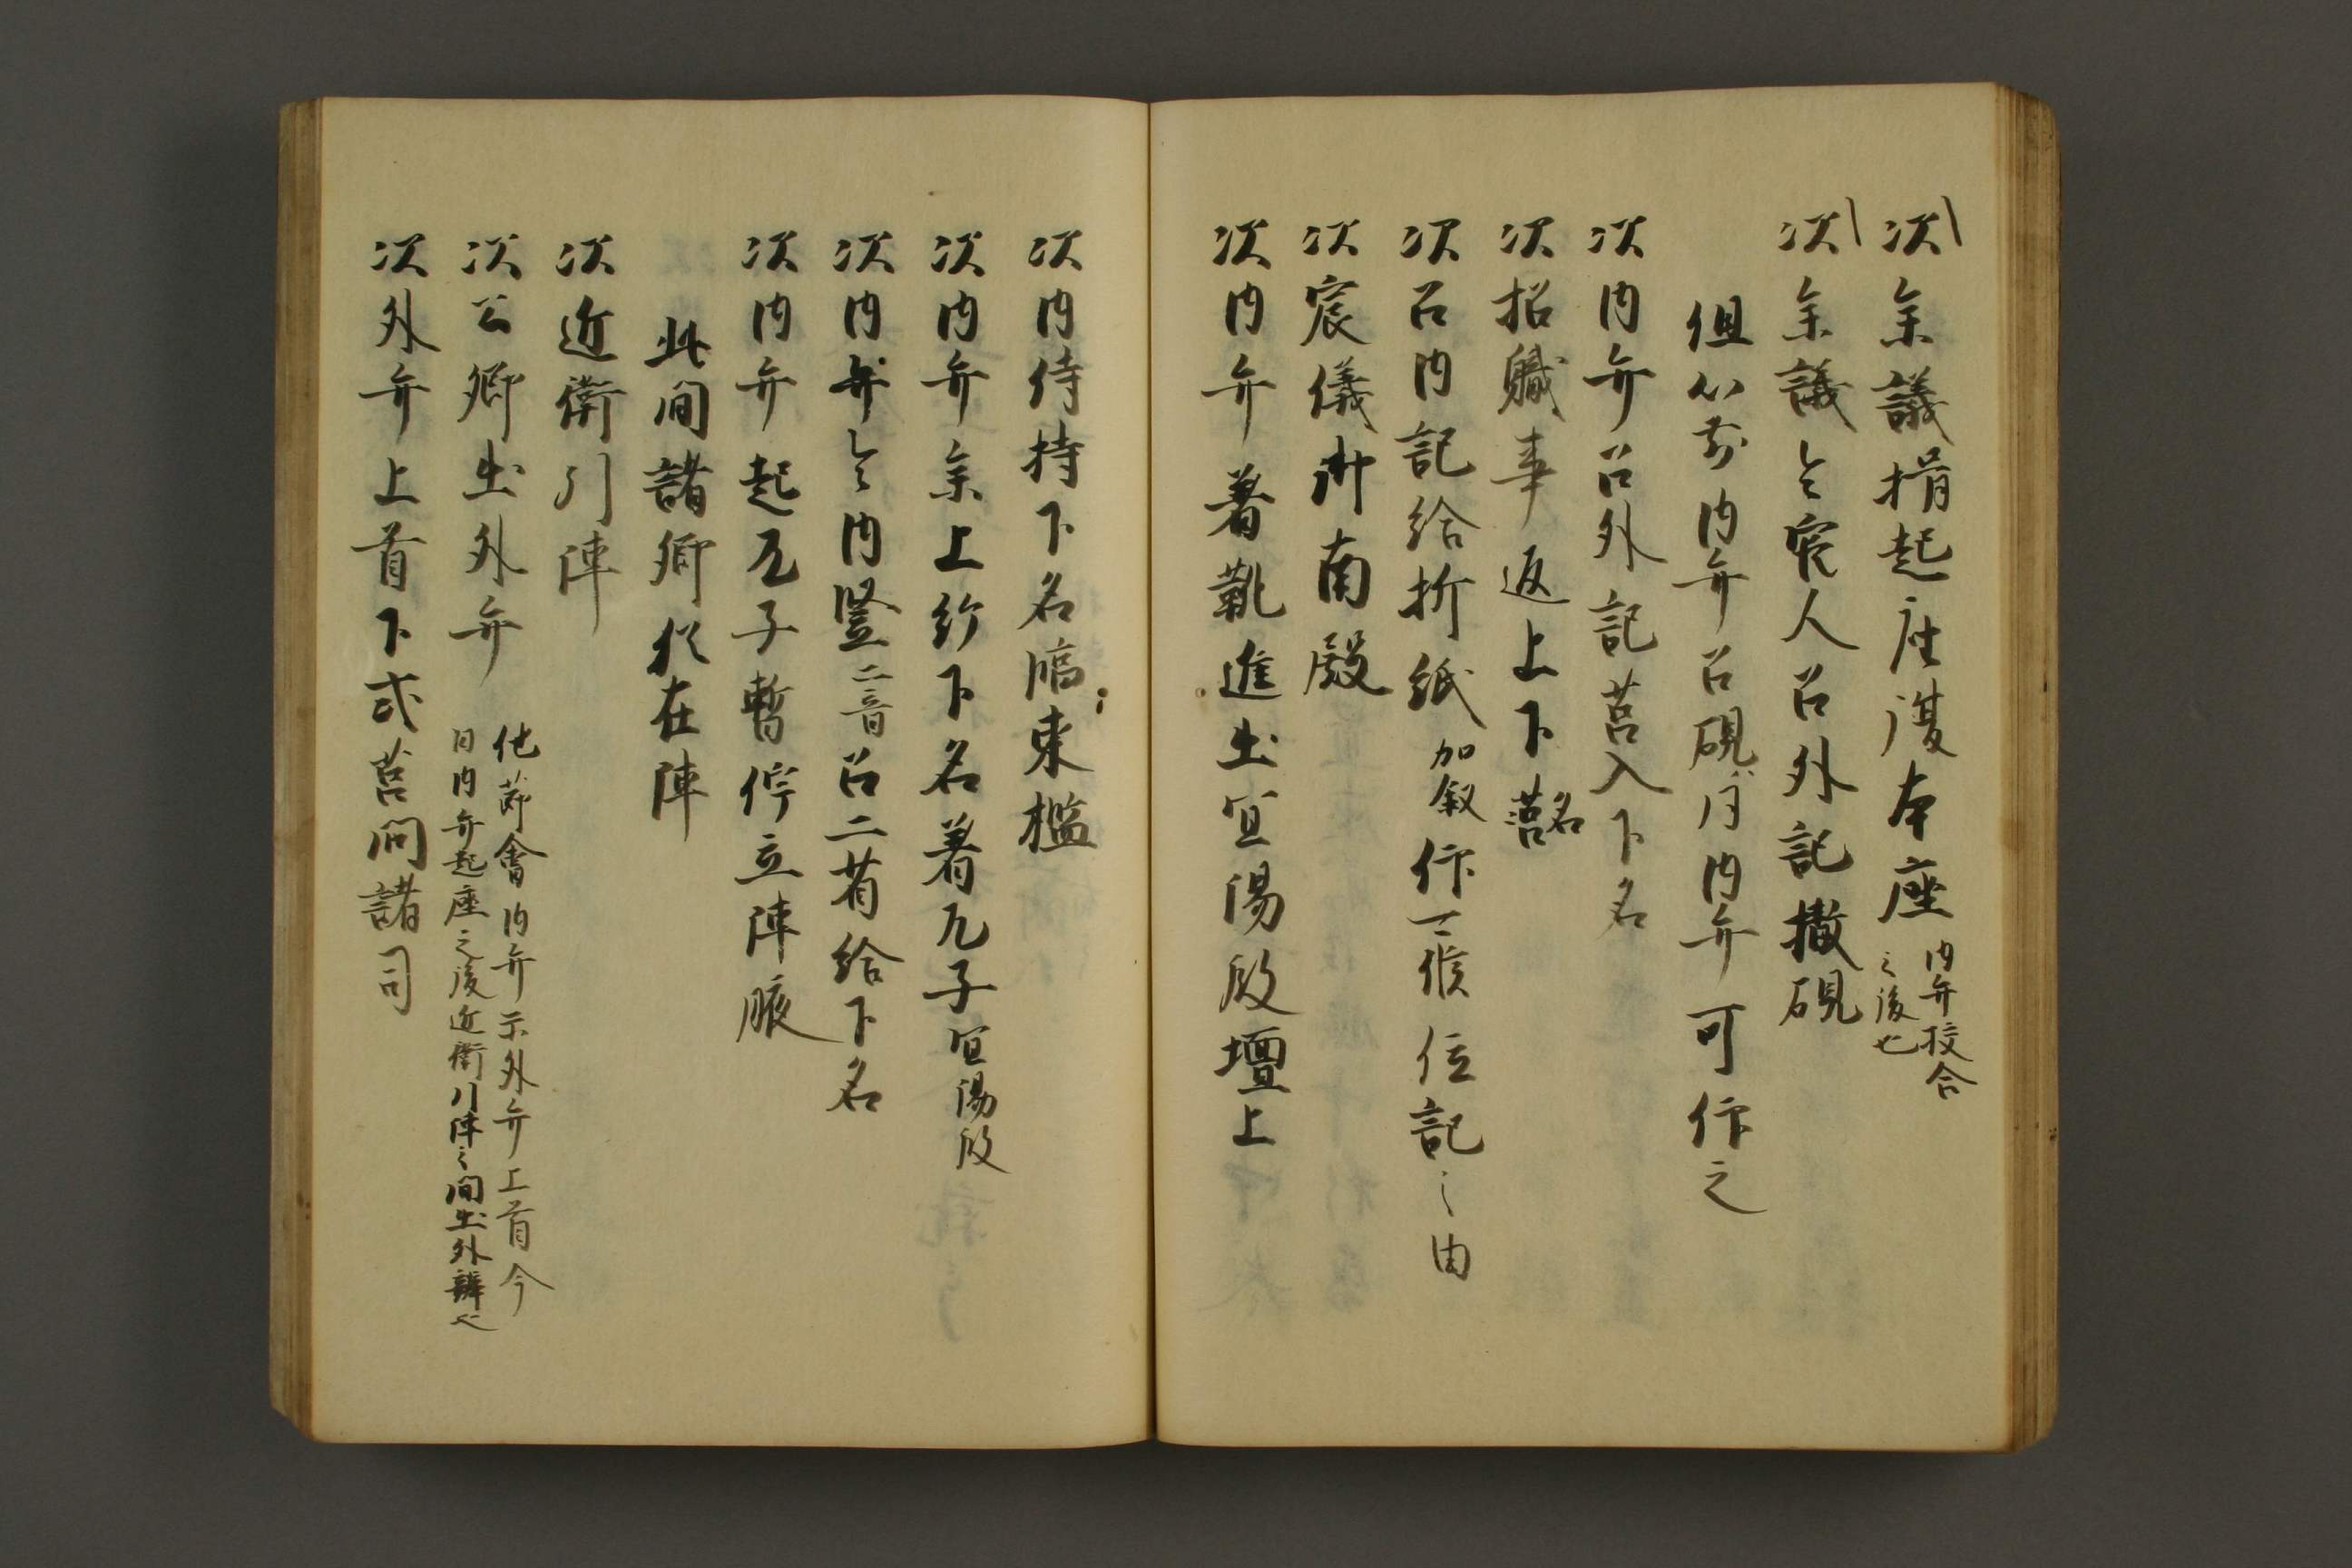 次参議揖起座復本座 内弁校合
之後也
次参議令官人召外記撤硯
但以前内弁召硯者内弁可仰之
次内弁召外記筥入下名
次招職事返上下名筥
次召内記給折紙 加叙 仰可候位記之由
次宸儀御南殿
次内弁著靴進出宜陽殿壇上
次内侍持下名臨東檻
次内弁参上給下名着兀子 宜陽殿
次内弁令内竪 二音 召二省給下名
次内弁起兀子暫佇立陣腋
此間諸卿猶在陣
次近衛引陣
次公卿出外弁 他節會内弁示外弁上首今
日内弁起座之後近衛引陣之間出外辨也
次外弁上首下式筥問諸司